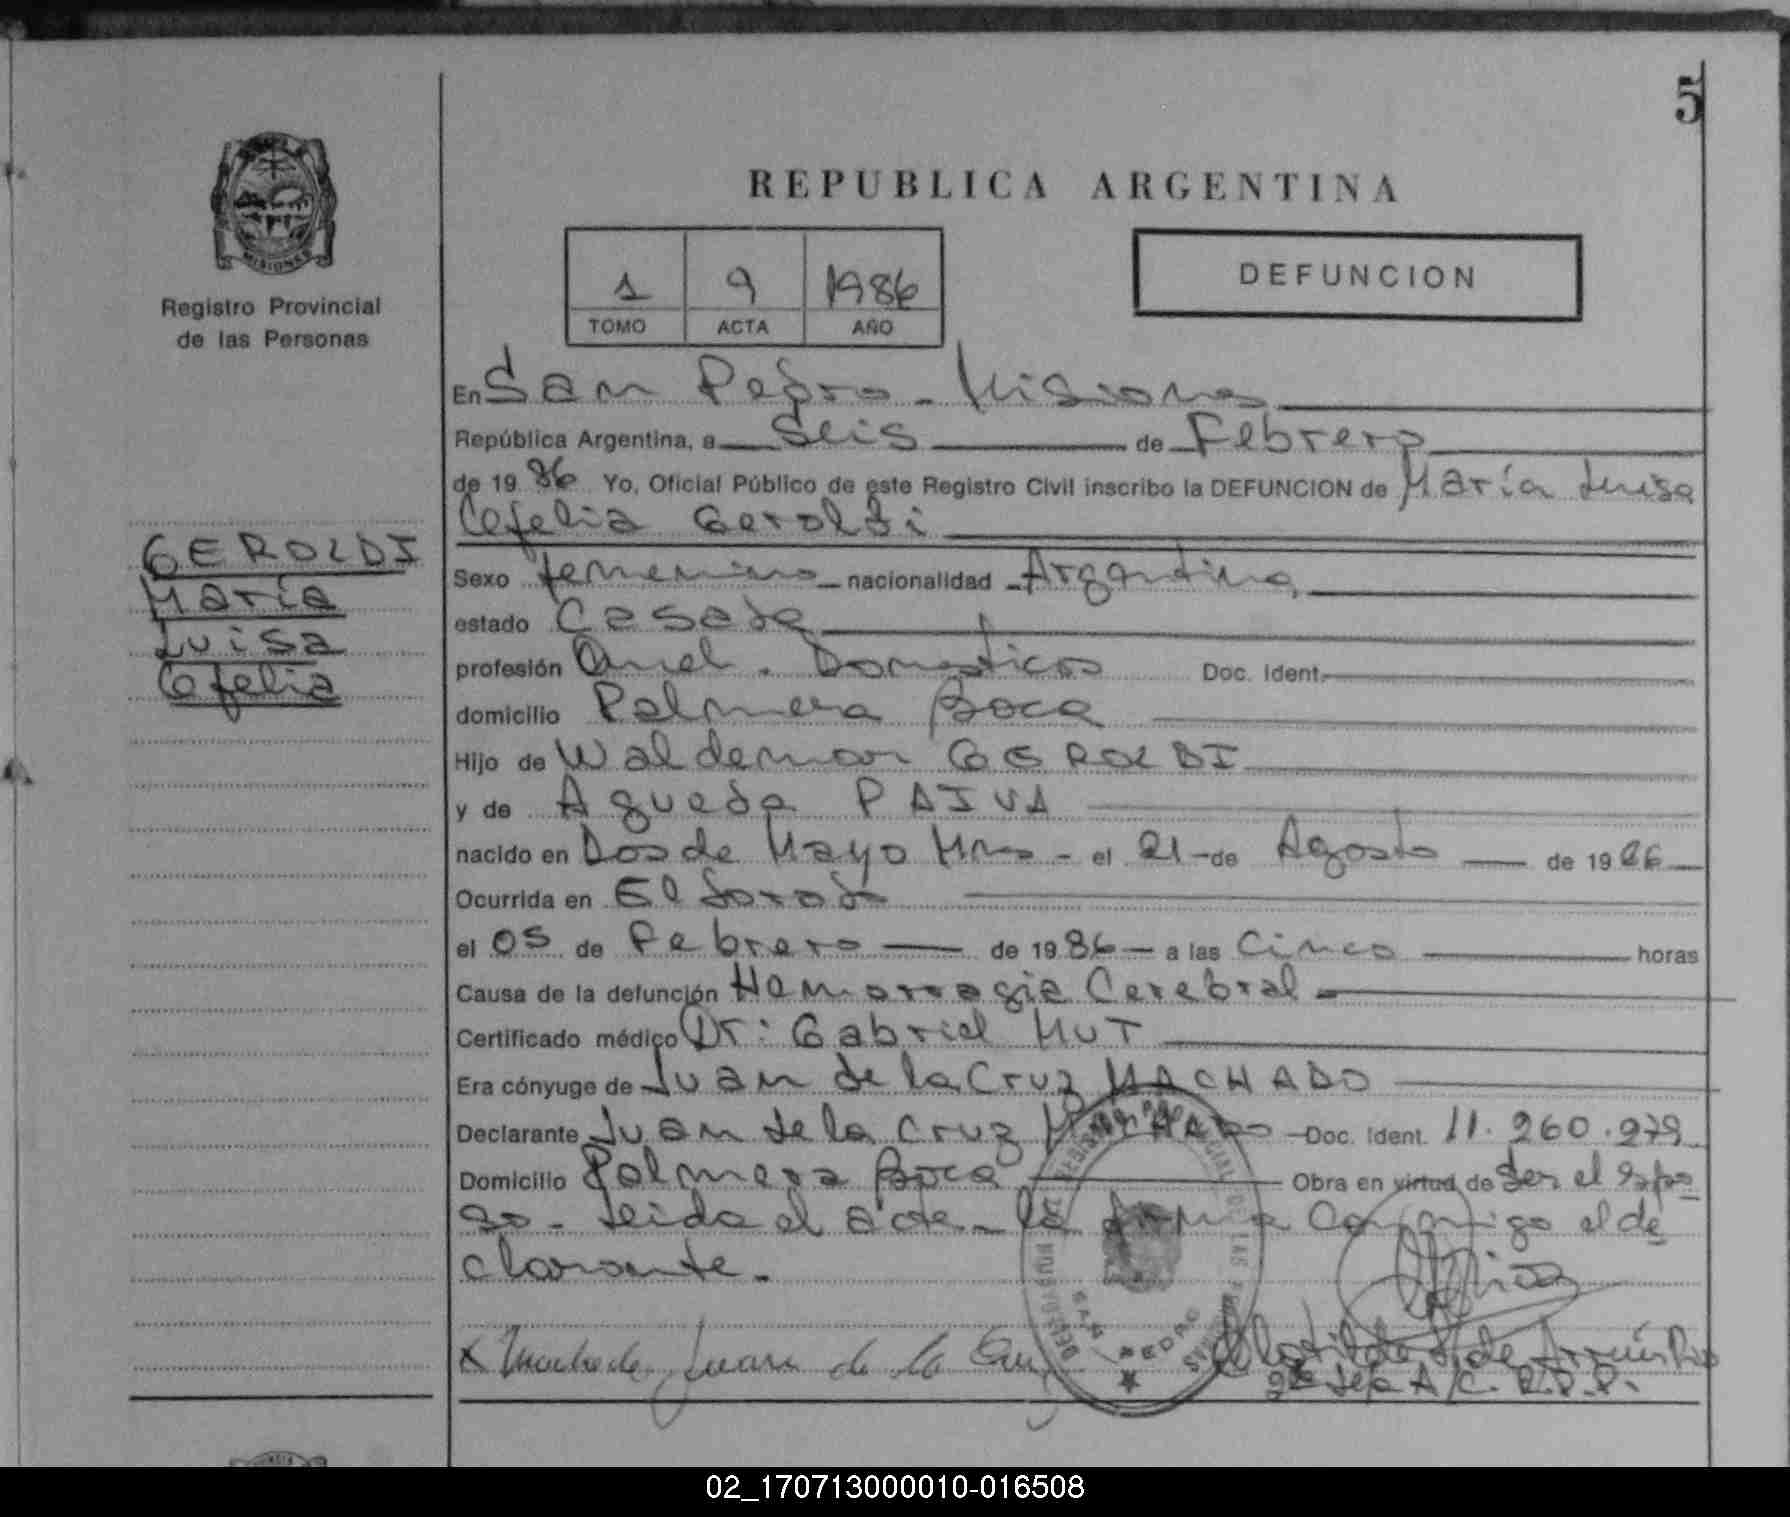 5
REPUBLICA ARGENTINA
MISIONES
Registro Provincial
de las Personas
1 9 1986
TOMO ACTA AÑO
DEFUNCION
En San Pedro - Misiones
República Argentina, a Seis de Febrero
de 19 86 Yo, Oficial Público de este Registro Civil inscribo la DEFUNCION de María Luisa
Cofelia Geroldi
GEROLDI
María
Luisa
Cofelia
Sexo femenino nacionalidad Argentina
estado Casada
profesión Queh. Domesticos Doc. Ident.
domicilio Palmera Boca
Hijo de Waldemar GEROLDI
y de Agueda PAIVA
nacido en Dos de Mayo Mnes - el 21 - de Agosto de 19
Ocurrida en Eldorado
el 05 de Febrero de 19 86 - a las Cinco horas
Causa de la defunción Hemorragia Cerebral -
Certificado médico Dr: Gabriel MUT
Era cónyuge de Juan de la Cruz MACHADO
Declarante Juan de la Cruz MACHADO Doc. Ident. 11.260.279
Domicilio Palmera Boca Obra en virtud de Ser el espo
so - Leida el acta - la firma Conmigo el de
clarante -
x Machado, Juan de la Cruz
SAN PEDRO
de Jefa A/C. R.P.P.
02_170713000010-016508